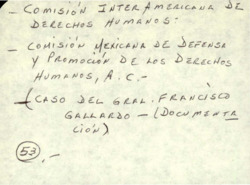 - COMISIÓN INTERAMERICANA DE
DERECHOS HUMANOS.
- COMISIÓN MEXICANA DE DEFENSA
Y PROMOCIÓN DE LOS DERECHOS
HUMANOS, A.C.-
(CASO DEL GRAL. FRANCISCO
GALLARDO - (DOCUMENTA
CIÓN)
53.-